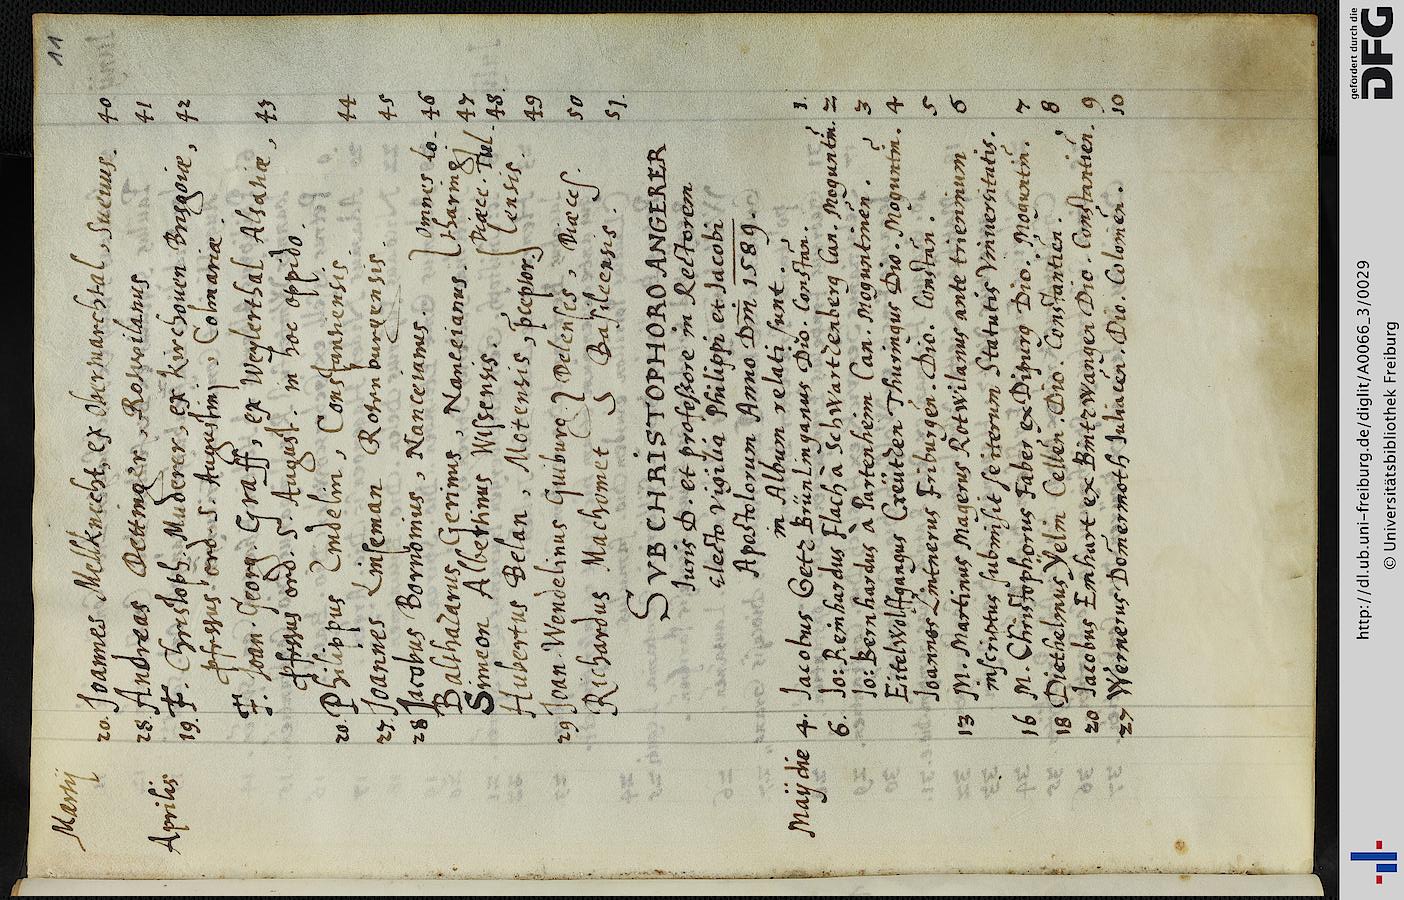 11
Martij
20. Joannes Mellknecht, ex Obermarchtal, Sueuus. 40
Aprilis
28. Andreas Dettinger, Rotwilanus 41
19. F. Christoph. Muderer, ex Kirchouen Brisgoiæ, 42
professus ord. S. Augustini, Colmariæ.
F. Joan. Georg. Graff, ex Weylerthal Alsatiæ, 43
professus ord. S. August. in hoc oppido.
20. Philippus Emdelin, Constantiensis 44
27. Joannes Eiseman Rotnburgensis. 45
28 Jacobus Bornonius, Nanceianus. 46
Balthazarus Gerinus, Nanceianus. 47
Simeon Albethinus Wisensis. 48.
Hubertus Belan, Motensis, præceptor. 49
Omnes Lo-
tharingi
Diœc. Tul-
lensis.
29 Joan. Wendelinus Guiburg Delensis, Diœces. 50
Richardus Machomet Basileensis. 51.
SVB CHRISTOPHORO ANGERER
Juris D. et professore in Rectorem
electo vigilia Philippi et Jacobi
Apostolorum Anno Dm̄ 1589.
in Album relati sunt.
Maij die 4. Jacobus Getz Brünlinganus Dio. Constan. 1.
6. Jo: Reinhardus Flach à Schwartzenberg Can. Moguntin. 2
Jo: Bernhardus à Partenheim Can. Moguntinen. 3
Eitel Wolffgangus Creützen Thuringus Dio. Moguntin. 4
Joannes Lintnerus Friburgen. Dio. Constan. 5
13 M. Martinus Magerus Rotwilanus ante triennium 6
inscriptus submisit se iterum Statutis Vniuersitatis.
16 M. Christophorus Faber ex Dipurg Dio. Moguntin. 7
18 Diethelmus Yelin Cellen. Dio. Constantien. 8
20 Jacobus Emhart ex Bintzwangen Dio. Constantien. 9
27 Wernerus Donnermoth Juliacen. Dio. Colonien. 10
gefördert durch die
DFG
http://dl.ub.uni-freiburg.de/diglit/A0066_3/0029
© Universitätsbibliothek Freiburg